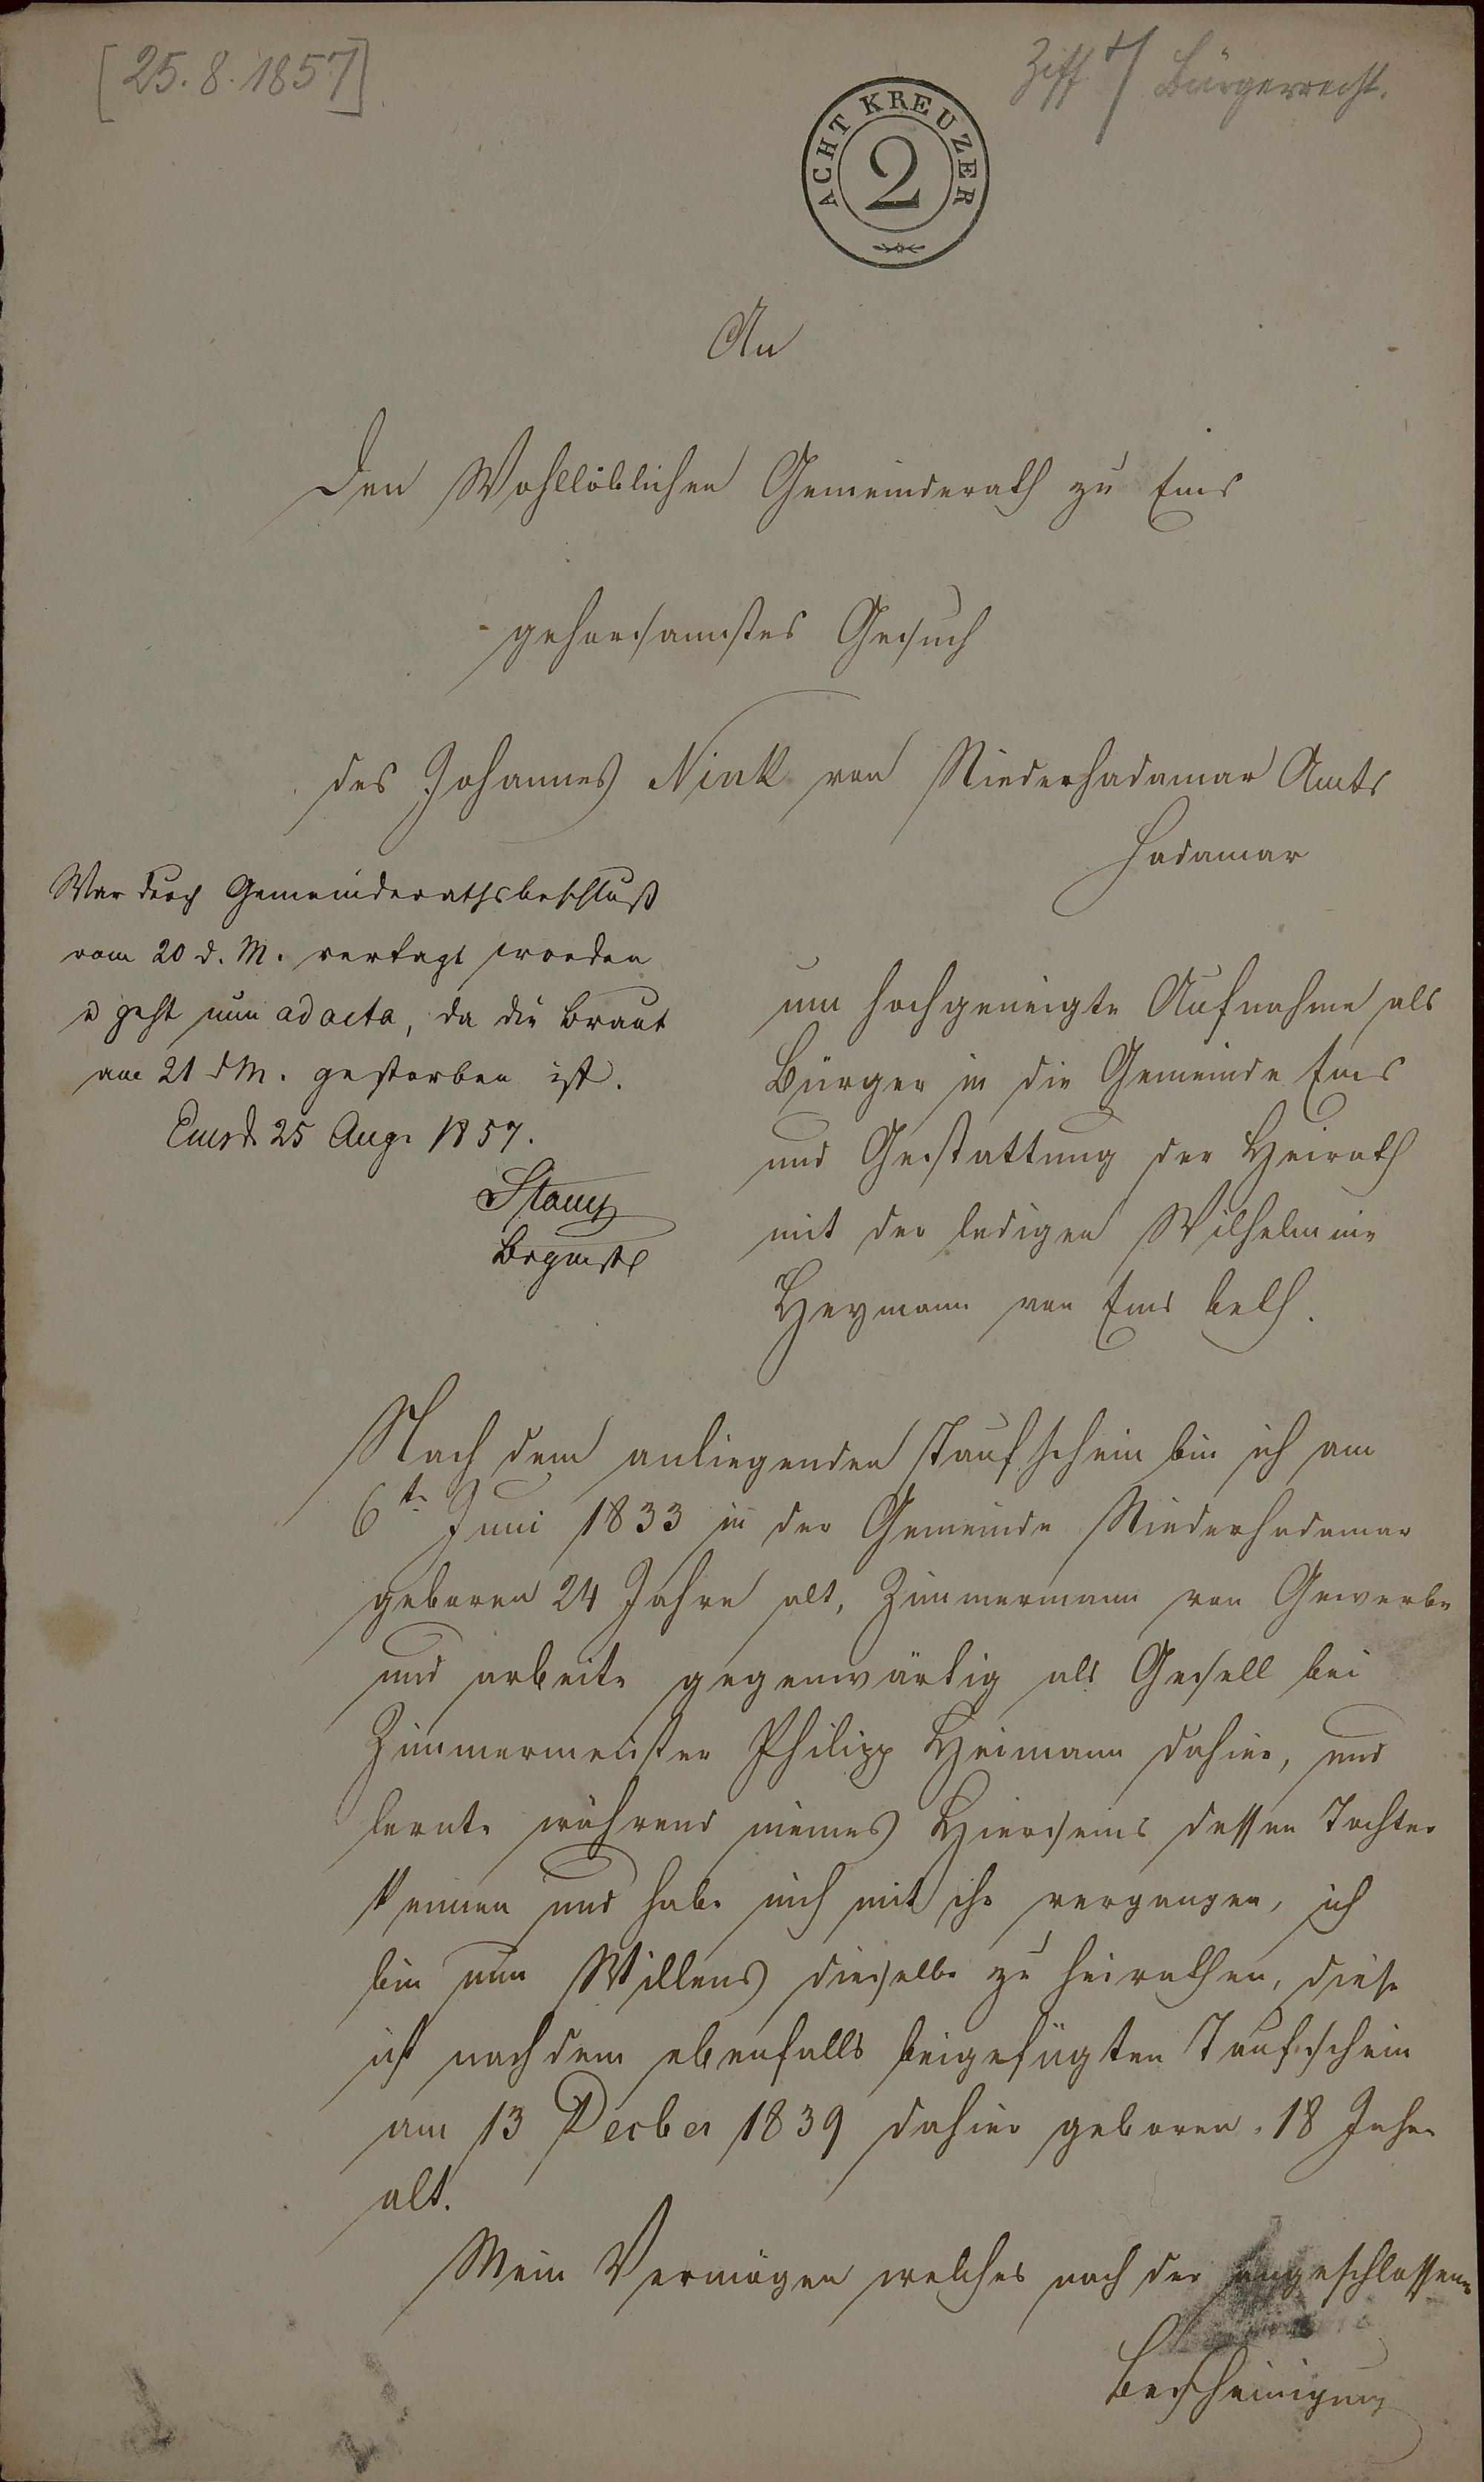 [25.8.1857]
Ziff 7/ Bürgerrecht.
ACHT KREUZER
2
An
Den Wohllöblichen Gemeinderath zu Ems
gehorsamstes Gesuch
des Johannes Nink von Niederhadamar Amts
Hadamar
um hochgeneigte Aufnahme als
Bürger in die Gemeinde Ems
und Gestattung der Heirath
mit der ledigen Wilhelmine
Heymann von Ems betr.
War durch Gemeinderathsbeschluß
vom 20 d. M. vertagt worden
u geht nun ad acta, da die Braut
am 21 d M. gestorben ist.
Ems d. 25 Aug. 1857.
Bgmstr
Nach dem anliegenden Taufschein bin ich am
6te Juni 1833 in der Gemeinde Niederhadamar
geboren 24 Jahre alt, Zimmermann von Gewerbe
und arbeite gegenwärtig als Gesell bei
Zimmermeister Philipp Heimann dahier, und
lernte während meines Hierseins dessen Tochter
kennen und habe mich mit ihr vergangen, ich
bin nun Willens dieselbe zu heirathen, diese
ist nach dem ebenfalls beigefügten Taufschein
am 13 Decber 1839 dahier geboren. 18 Jahre
alt.
Mein Vermögen welches nach der angeschlossene
Bescheinigung